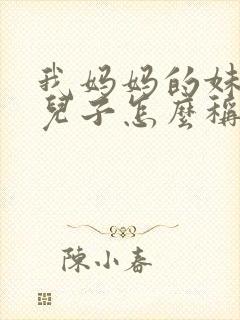 我妈妈的妹
兒子怎麼稱
陳小春